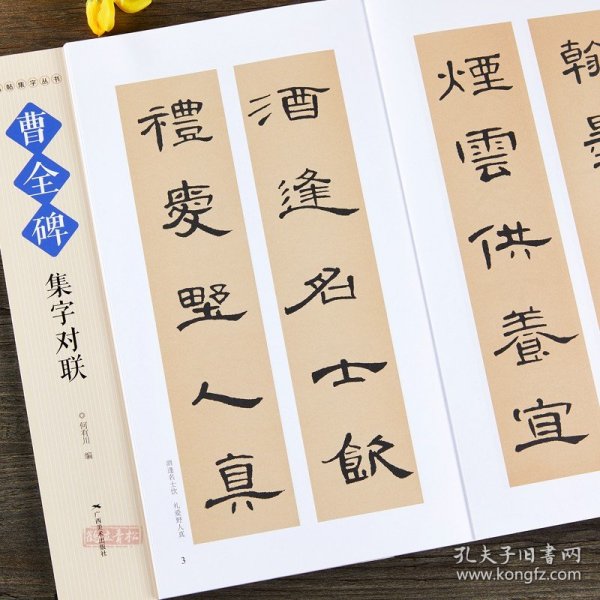 帖集字丛书
曹全碑
集字对联
何有川 编
广西美术出版社
酒逢名士飲
禮愛野人真
酒逢名士饮 礼爱野人真
3
翰墨
煙雲供養宜
孔夫子旧书网
www.kongfz.com